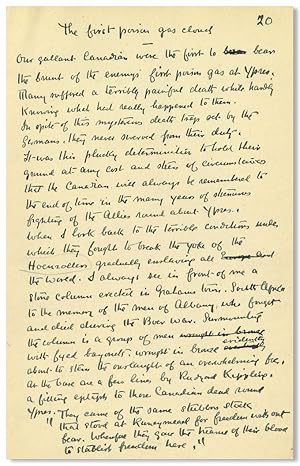 20
The first poison gas cloud
Our gallant Canadians were the first to bear
the brunt of the enemys' first poison gas at Ypres.
Many suffered a terribly painful death whilst hardly
Knowing what had really happened to them.
In spite of this mysterious death trap set by the
Germans, they never swerved from their duty.
It was this plucky determination to hold their
ground at any cost and stress of circumstances
that the Canadians will always be remembered to
the end of time in the many years of strenuous
fighting of the Allies round about Ypres.
When I look back to the terrible conditions under
which they fought to break the yoke of the
gradually enslaving all
the world. I always see in front of me a
stone column erected in Grahams Town. South Africa
to the memory of the men of Albany, who fought
and died during the Boer War. Surmounting
the column is a group of men wrought in bronze evidently
with fixed bayonets wrought in bronze
about to stem the onslaught of an overwhelming foe.
At the base are a few lines by Rudyard Kipling,
a fitting epitaph to those Canadian dead round
Ypres. They came of the same stubborn stock
"that stood at Runnymede for freedom without
fear. Wherefore they gave the treasure of their blood
to stablish freedom here."